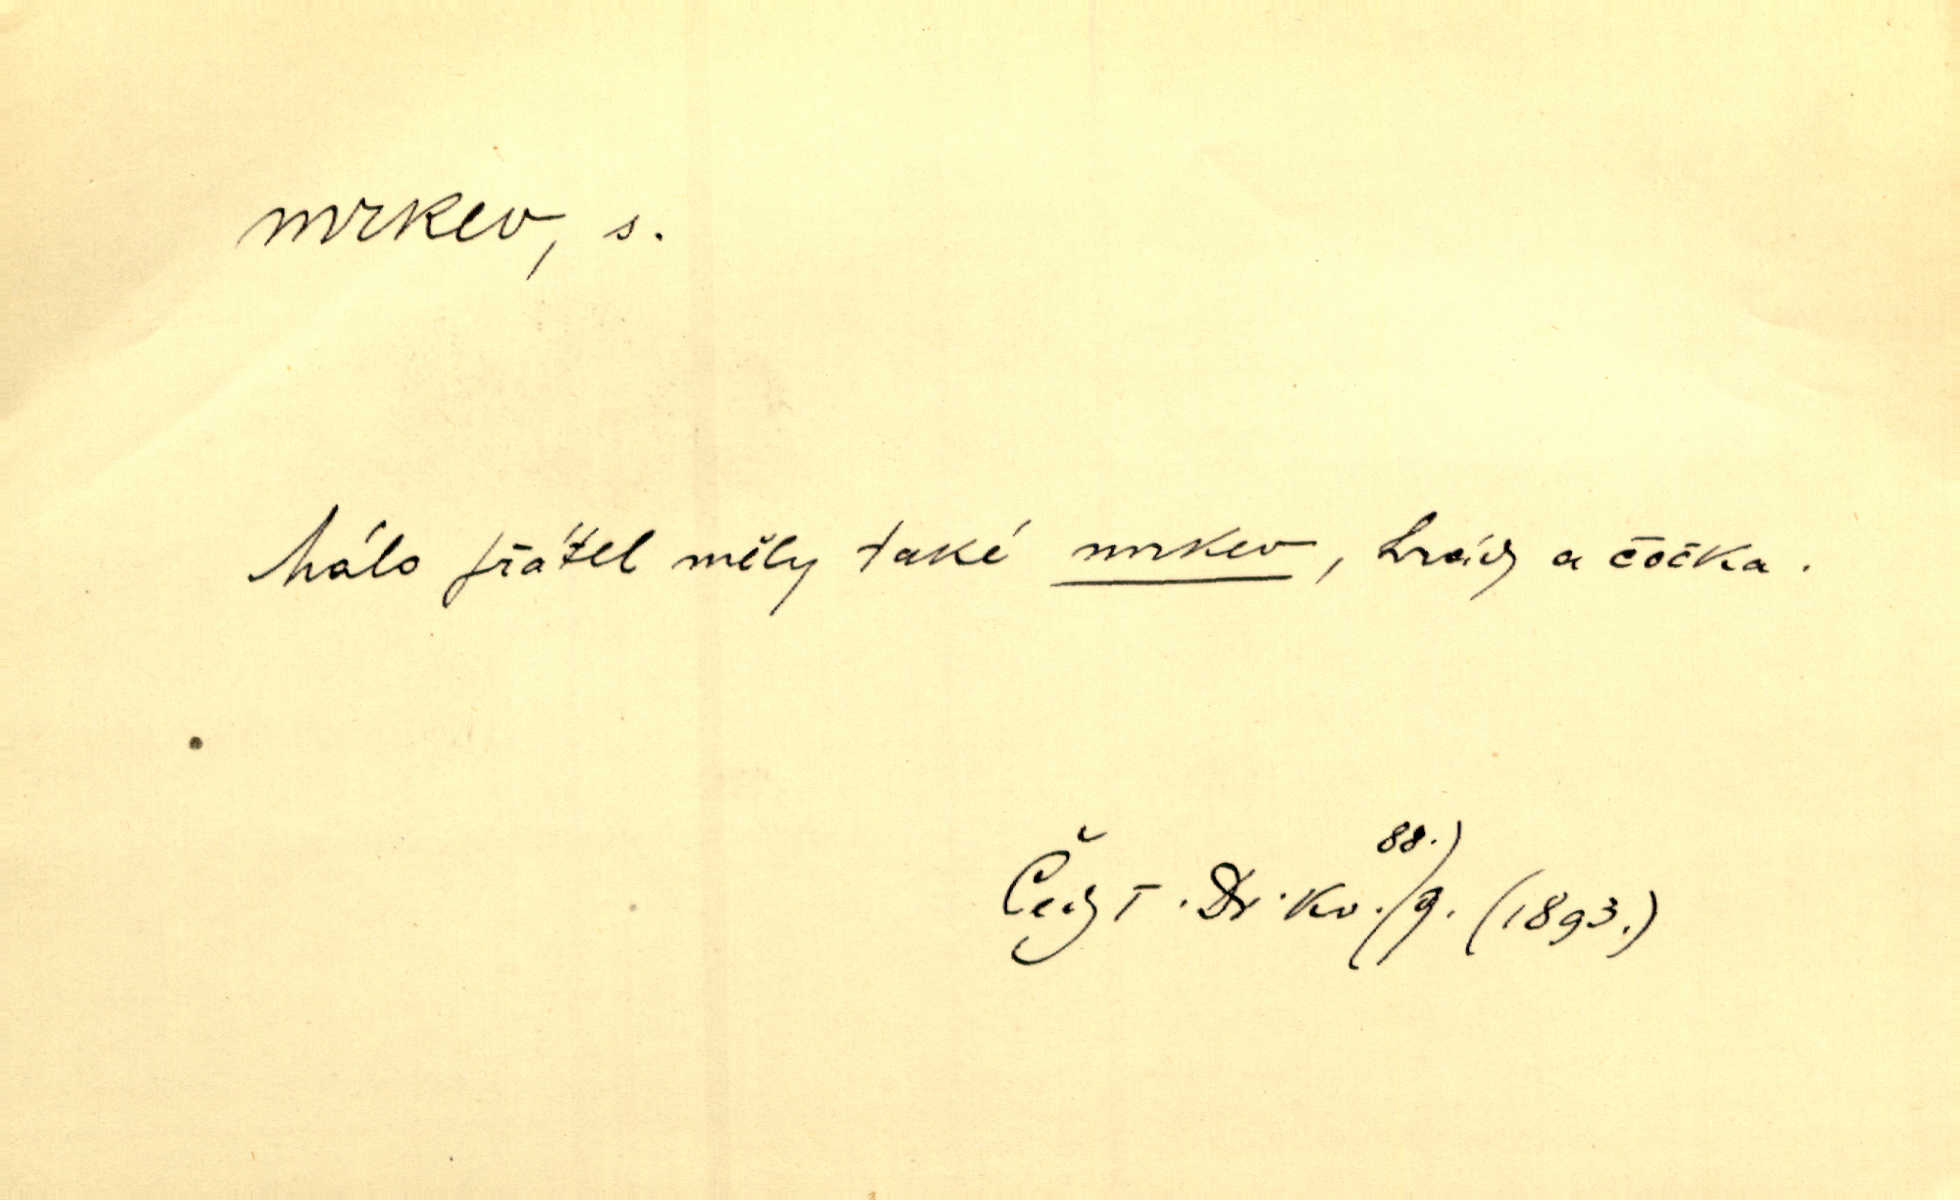 mrkev, s.
Málo přátel měly také mrkev, hrách a čočka.
Čech T. Dr. Kv. 88.)/9. (1893.)